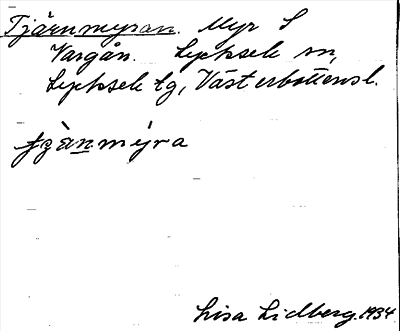 Tjärnmyran. Myr S
Vargån. Lycksele sn,
Lycksele tg, Västerbottensl.
Lisa Lidberg. 1934